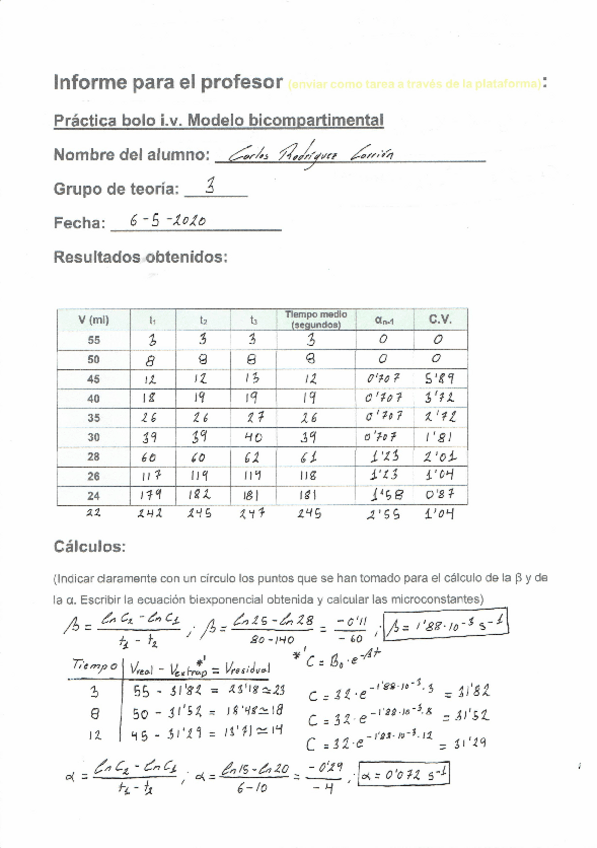 Informe para el profesor (enviar como tarea a través de la plataforma):
Práctica bolo i.v. Modelo bicompartimental
Nombre del alumno: Carlos Rodríguez Carrión
Grupo de teoría: 3
Fecha: 6-5-2020
Resultados obtenidos:
V (ml) t₁ t₂ t₃ Tiempo medio (segundos) αn-1 C.V.
55 3 3 3 3 0 0
50 8 8 8 8 0 0
45 12 12 13 12 0'707 5'89
40 18 19 19 19 0'707 3'72
35 26 26 27 26 0'707 2'72
30 39 39 40 39 0'707 1'81
28 60 60 62 61 1'23 2'01
26 117 119 119 118 1'23 1'04
24 179 182 181 181 1'58 0'87
22 242 245 247 245 2'55 1'04
Cálculos:
(Indicar claramente con un círculo los puntos que se han tomado para el cálculo de la β y de
la α. Escribir la ecuación biexponencial obtenida y calcular las microconstantes)
β = ln C₂ - ln C₁ / t₁ - t₂ ; β = ln 25 - ln 28 / 80 - 140 = -0'11 / -60 ; β = 1'88·10⁻³ s⁻¹
Tiempo Vreal - Vextrap*' = Vresidual *' C = B₀·e^-βt
3 55 - 31'82 = 23'18 ≃ 23 C = 32·e^-1'88·10⁻³·3 = 31'82
8 50 - 31'52 = 18'48 ≃ 18 C = 32·e^-1'88·10⁻³·8 = 31'52
12 45 - 31'29 = 13'71 ≃ 14 C = 32·e^-1'88·10⁻³·12 = 31'29
α = ln C₂ - ln C₁ / t₁ - t₂ ; α = ln 15 - ln 20 / 6 - 10 = -0'29 / -4 ; α = 0'072 s⁻¹